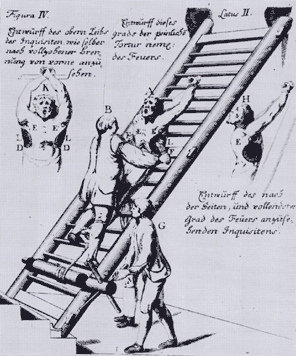 Figura IV.
Entwürff des obern Leibs
des Inquisiten wie selber
nach vollzogener bren
nung von vorne anzu
sehen.
Entwürff dieses
grads der peinliche
Tortur neml:
des Feuers.
Latus II.
K
E E
L
D D
B
A
E
L
F
H
E E
D
G
Entwürff des nach
der Seiten, und vollendeten
Grad des Feüers anzuse,
henden Inquisitens.